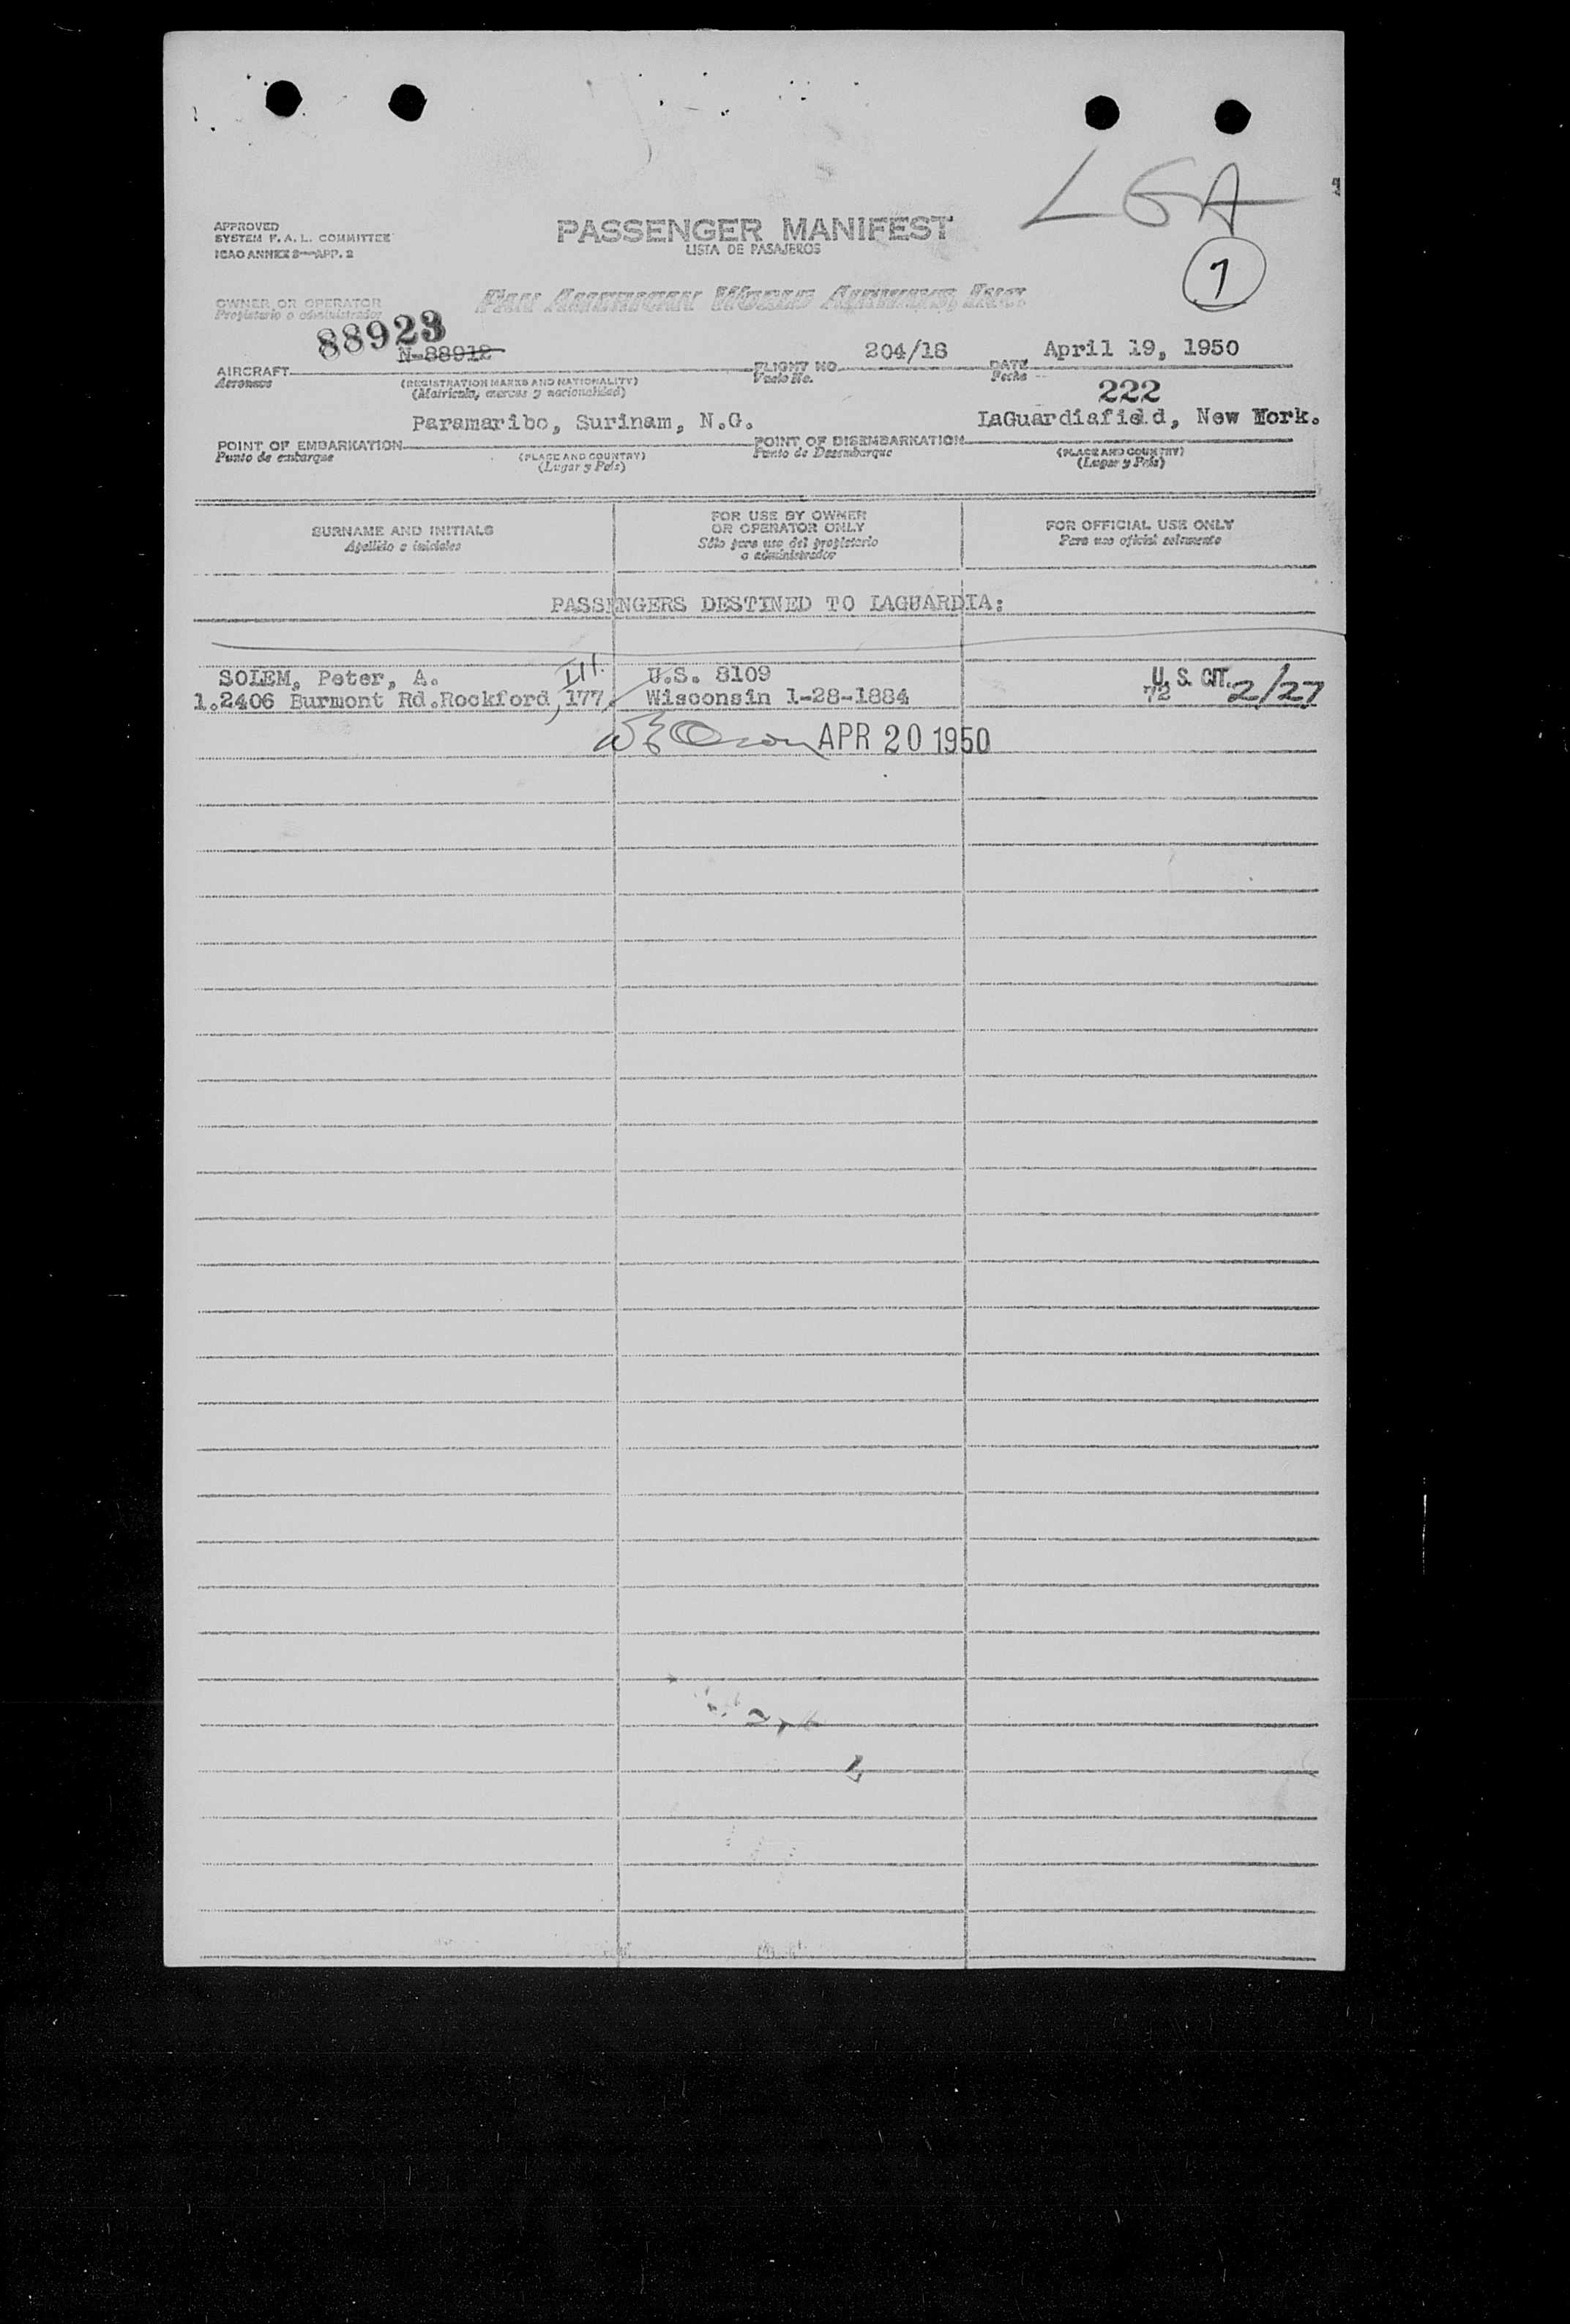 LGA
APPROVED
SYSTEM F. A. L. COMMITTEE
ICAO ANNEX 9—APP. 2
PASSENGER MANIFEST
LISTA DE PASAJEROS
1
OWNER OR OPERATOR
Propietario o administrador
PAN AMERICAN WORLD AIRWAYS, INC.
88923
N-88912
204/18
April 19, 1950
AIRCRAFT
Aeronave
(REGISTRATION MARKS AND NATIONALITY)
(Matricula, marcas y nacionalidad)
FLIGHT NO.
Vuelo No.
DATE
Fecha
222
Paramaribo, Surinam, N.G.
LaGuardiafield, New York.
POINT OF EMBARKATION
Punto de embarque
(PLACE AND COUNTRY)
(Lugar y País)
POINT OF DISEMBARKATION
Punto de Desembarque
(PLACE AND COUNTRY)
(Lugar y País)
SURNAME AND INITIALS
Apellido e iniciales
FOR USE BY OWNER
OR OPERATOR ONLY
Sólo para uso del propietario
o administrador
FOR OFFICIAL USE ONLY
Para uso oficial solamente
PASSENGERS DESTINED TO LAGUARDIA:
SOLEM, Peter, A. Ill. U.S. 8109 U. S. CIT.
1.2406 Burmont Rd.Rockford, 177 Wisconsin 1-28-1884 72 2/27
APR 20 1950